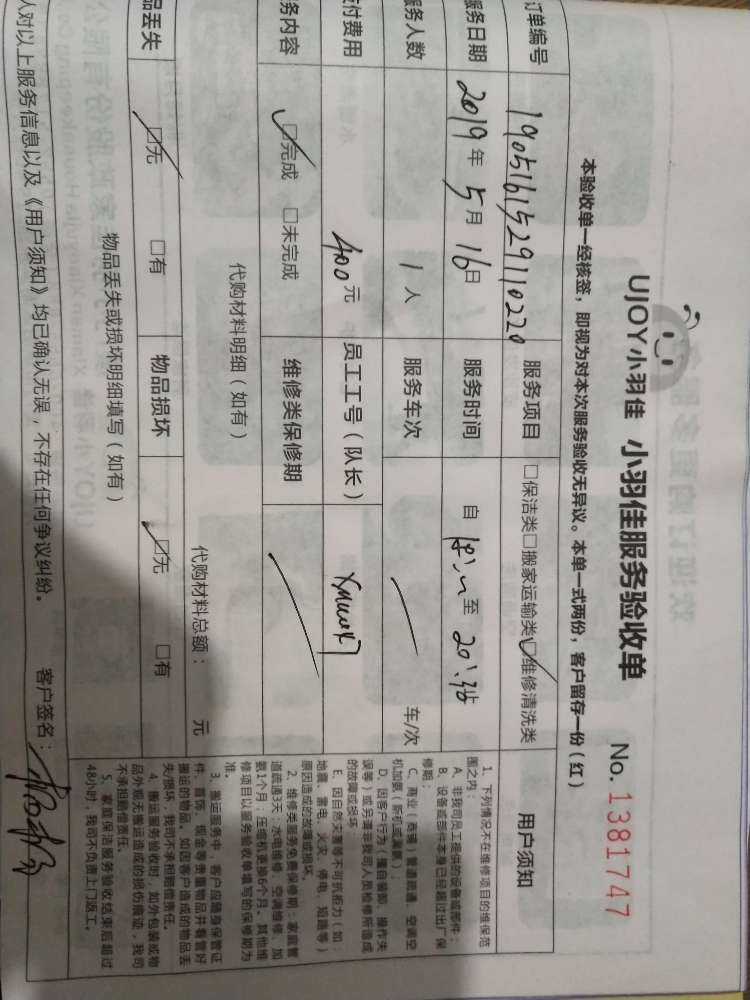 UJOY小羽佳 小羽佳服务验收单 No. 1381747
本验收单一经核签，即视为对本次服务验收无异议。本单一式两份，客户留存一份（红）
订单编号 1905161529110220 服务项目 □保洁类□搬家运输类☑维修清洗类
服务日期 2019年5月16日 服务时间 自 至
服务人数 1人 服务车次 车/次
支付费用 400元 员工工号（队长）
服务内容 ☑完成 □未完成 维修类保修期
代购材料明细（如有）
代购材料总额： 元
物品丢失 ☑无 □有 物品损坏 ☑无 □有
物品丢失或损坏明细填写（如有）
人对以上服务信息以及《用户须知》均已确认无误，不存在任何争议纠纷。 客户签名：
用户须知
1、下列情况不在维修项目的维保范
围之内：
A、非我司员工提供的设备或部件；
B、设备或部件本身已经超过出厂保
修期；
C、商业（商铺）管道疏通、空调空
机加氨（新机或漏氨）；
D、因客户行为（擅自装卸、操作失
误等）或另请非我司人员检修所造成
的故障或损坏；
E、因自然灾害等不可抗拒力（如：
地震、雷电、火灾、停电、短路等）
原因造成的故障或损坏。
2、维修类服务免费保修期：家庭管
道疏通3天；水电维修、空调维修、加
氨1个月；压缩机更换6个月。其他维
修项目以服务验收单填写的保修期为
准。
3、搬运服务中，客户应随身保管证
件、首饰、现金等贵重物品并看管好
搬运的物品。如因客户造成的物品丢
失/损坏，我司不承担赔偿责任。
4、搬运服务验收时，如外包装或物
品外观无搬运造成的损伤痕迹，我司
不承担赔偿责任。
5、家庭保洁服务验收结束后超过
48小时，我司不负责上门返工。